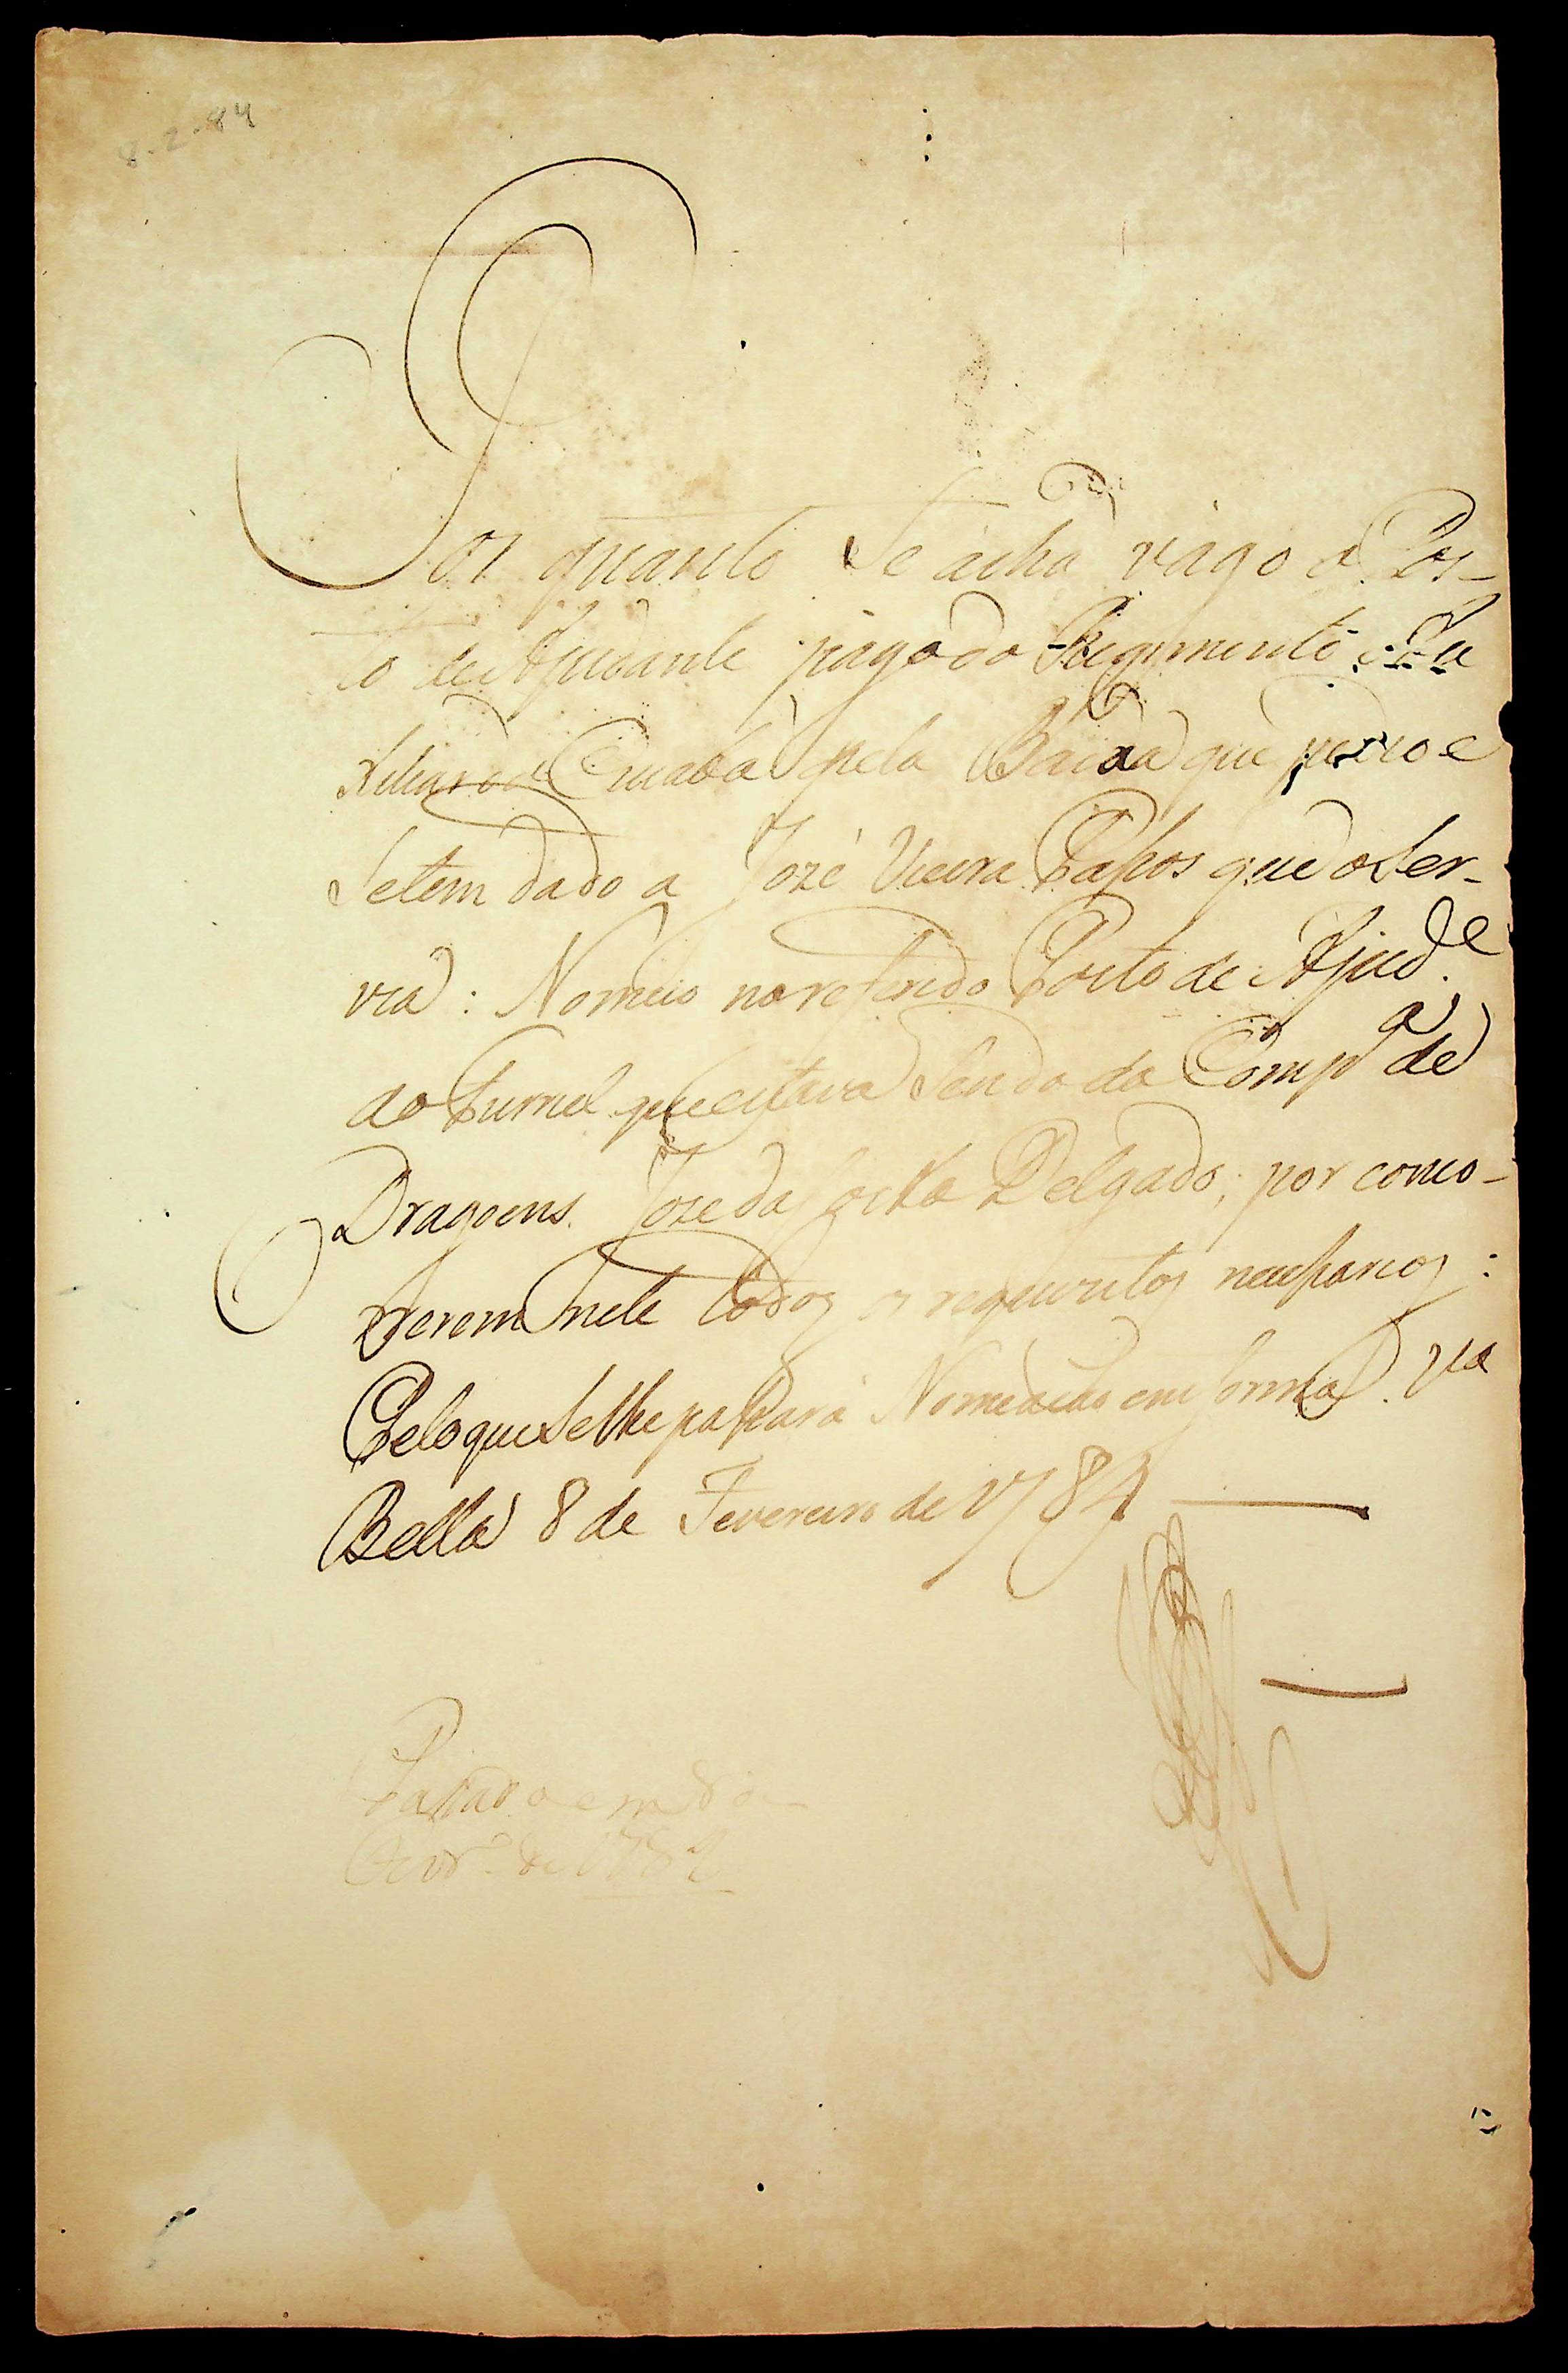 8-2-84
Por quanto Se acha vago o Pos-
to de Ajudante pago do Regimento Au
xiliar do Cuiabá pela Baixa que pedio e
Setem dado a Jozé Vieira Passos que o Ser-
via: Nomeio no referido Posto de Ajud.e
ao Furriel que estava Sendo da Comp.a de
Dragoens Joze da Delgado; por conco-
rrerem nele todos os requisitos necessarios:
Pelo que Selhe passará Nomeacao em forma. V.a
Bella 8 de Fevereiro de 1784
Passado em 8 de
Fevr.o de 1784